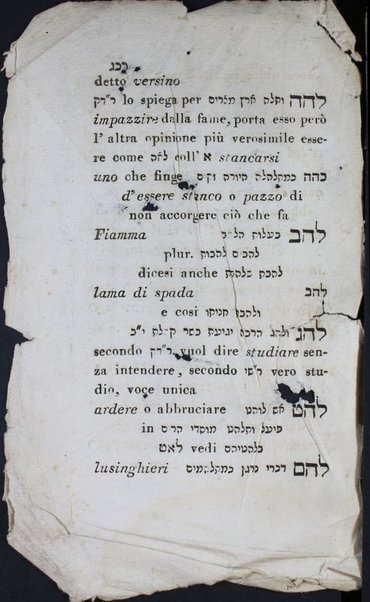 רכג
detto versino
להה ותלה ארץ מצרים ר״דק lo spiega per
impazzire dalla fame, porta esso però
l' altra opinione più verosimile esse-
re come לאה coll' א stancarsi
כהה כמתלהלה היורה וקים uno che finge
d'essere stanco o pazzo di
non accorgere ciò che fa
להב בעלות הלהב Fiamma
plur. להבים להבות
dicesi anche להבת שלהבת
להב lama di spada
e così ולהב חניתו
להג ולהג הרבה יגיעת בשר קהלת י״ב
secondo ר״דק vuol dire studiare sen-
za intendere, secondo רש״י vero stu-
dio, voce unica
להט אש לוהט ardere o abbruciare
in פיעל ותלהט מוסדי הרים
בלהטיהם vedi לאט
להם דברי נרגן כמתלהמים lusinghieri